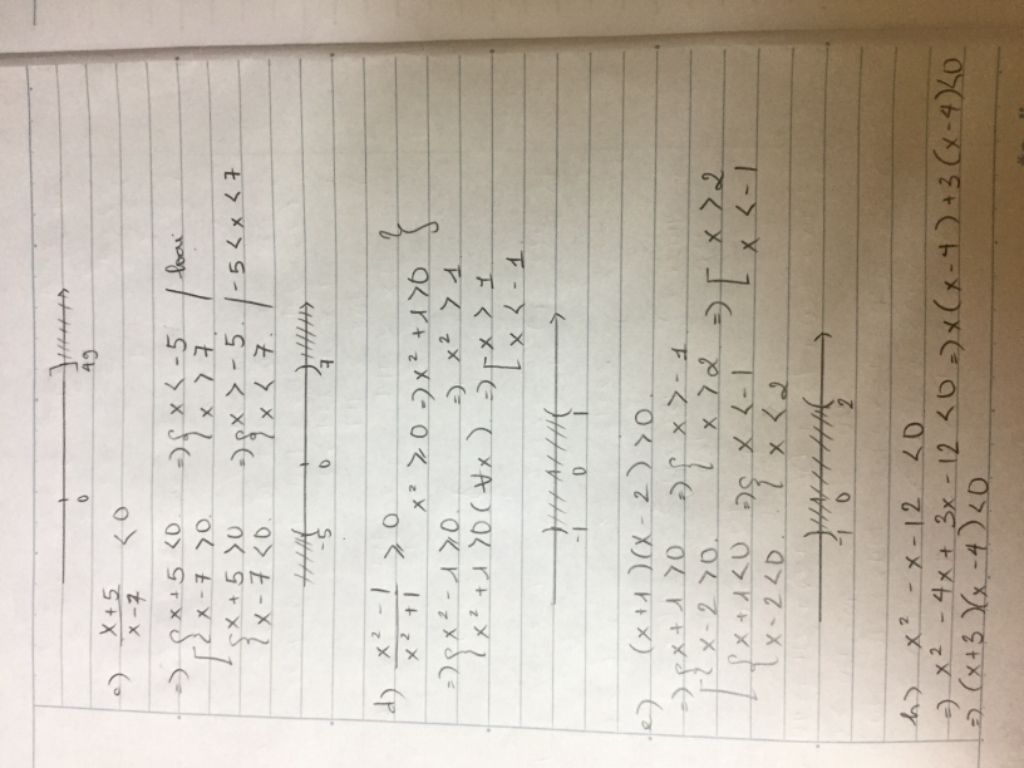 0 49
c) x+5/x-7 < 0
=> [ { x+5 < 0 => { x < -5 / loại
{ x-7 > 0. { x > 7 /
{ x+5 > 0 => { x > -5. / -5 < x < 7
{ x-7 < 0. { x < 7. /
-5 0 7
d) x²-1/x²+1 ≥ 0
x² ≥ 0 => x²+1 > 0 }
=> { x²-1 ≥ 0. => x² > 1
{ x²+1 > 0 (∀x) => [ x > 1
[ x < -1
-1 0 1
e) (x+1)(x-2) > 0
=> [ { x+1 > 0 => { x > -1
{ x-2 > 0. { x > 2 => [ x > 2
{ x+1 < 0 => { x < -1 [ x < -1
{ x-2 < 0. { x < 2
-1 0 2
h) x² - x - 12 < 0
=> x² - 4x + 3x - 12 < 0 => x(x-4) + 3(x-4) < 0
=> (x+3)(x-4) < 0